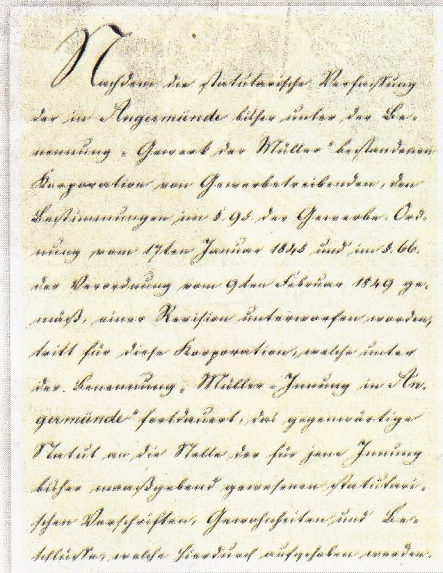 Nachdem die statutarische Verfassung
der in Angermünde bisher unter der Be-
nennung „Gewerk der Müller" bestandenen
Korporation von Gewerbetreibenden, den
Bestimmungen im §. 95 der Gewerbe-Ord-
nung vom 17ten Januar 1845 und im §. 66.
der Verordnung vom 9ten Februar 1849 ge-
mäß, einer Revision unterworfen worden,
tritt für diese Korporation, welche unter
der Benennung „Müller-Innung in An-
germünde" fortdauert, das gegenwärtige
Statut an die Stelle der für jene Innung
bisher maaßgebend gewesenen statutari-
schen Vorschriften, Gewohnheiten und Be-
schlüsse, welche hierdurch aufgehoben werden.